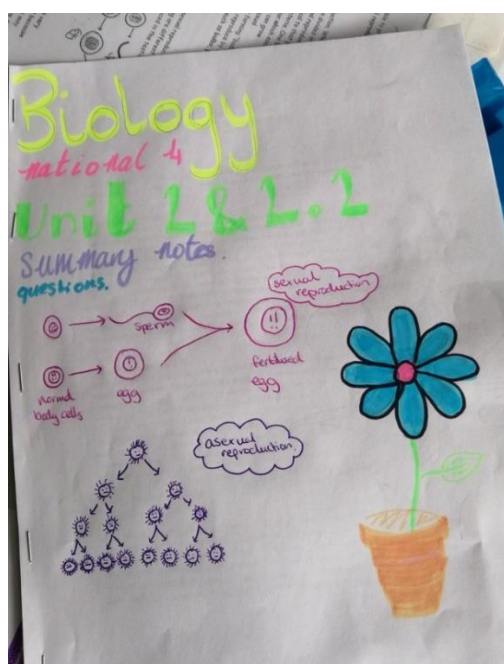 Biology
national 4
Unit 2 & 2.2
Summary notes.
questions.
sexual
reproduction
sperm
fertilised
egg
normal
body cells
egg
asexual
reproduction.